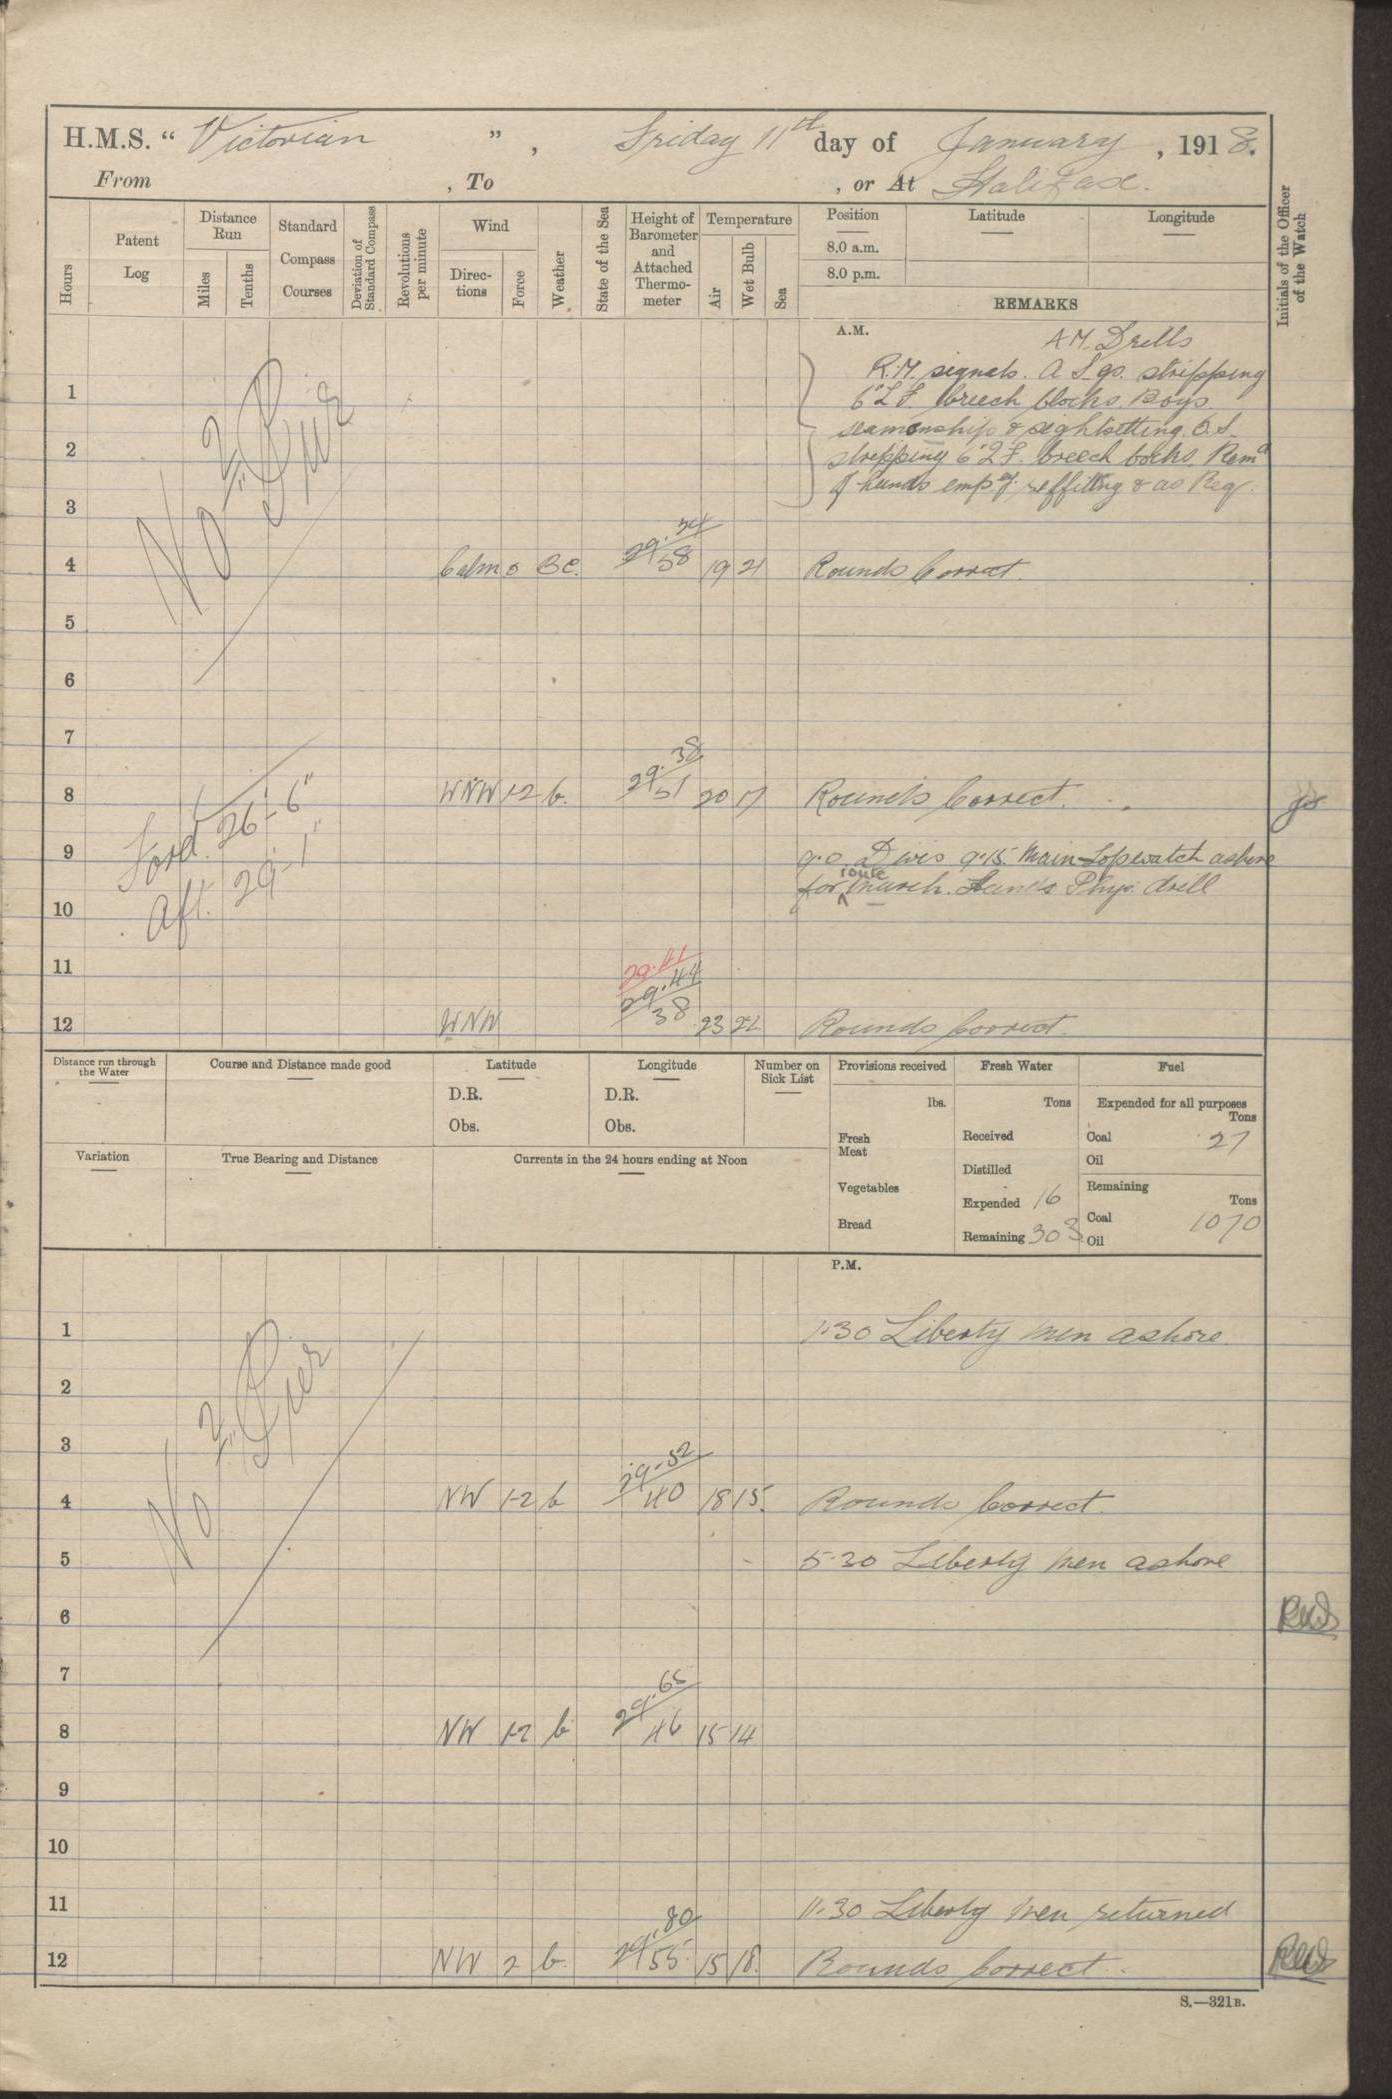 H.M.S. “ Victorian ” , Friday 11th day of January , 1918.
From , To , or At Halifax.
Hours
Patent Log
Distance Run
Miles
Tenths
Standard Compass Courses
Deviation of Standard Compass
Revolutions per minute
Wind
Direc-tions
Force
Weather
State of the Sea
Height of Barometer and Attached Thermo-meter
Temperature
Air
Wet Bulb
Sea
Position
8.0 a.m.
8.0 p.m.
Latitude
Longitude
REMARKS
Initials of the Officer of the Watch
A.M.
A.M. Drills
R.M. signals. A S.gs. stripping
1 6" Q.F. breech blocks. Boys
seamanship & sightsetting. O.S.
2 stripping 6" Q.F. breech bocks. Remd
of hands empd refitting & as Req.
3
No 2 Pier
4 Calm 0 BC. 29.34 58 19 21 Rounds Correct.
5
6
7
8 WNW 1-2 b. 29.38 51 20 17 Rounds Correct.
Ford. 26'-6"
9 9.0. Divis 9.15. Main-Topwatch ashore
for route march. Hands Phys: drill
Aft. 29'-1"
10
11 29.41
12 WNW 29.44 38 23 22 Rounds Correct.
Distance run through the Water
Course and Distance made good
Latitude
D.R.
Obs.
Longitude
D.R.
Obs.
Number on Sick List
Provisions received
lbs.
Fresh Meat
Vegetables
Bread
Fresh Water
Tons
Received
Distilled
Expended 16
Remaining 303
Fuel
Expended for all purposes
Tons
Coal 27
Oil
Remaining
Tons
Coal 1070
Oil
Variation
True Bearing and Distance
Currents in the 24 hours ending at Noon
P.M.
1 1.30 Liberty men ashore.
2
No 2 Pier
3
4 NW 1-2 b 29.52 40 18 15. Rounds Correct.
5 5.30 Liberty men ashore
6
7
8 NW 1-2 b 29.65 46 15 14
9
10
11 11.30 Liberty men returned
12 NW 2 b. 29.80 55 15 18. Rounds Correct.
S.—321B.